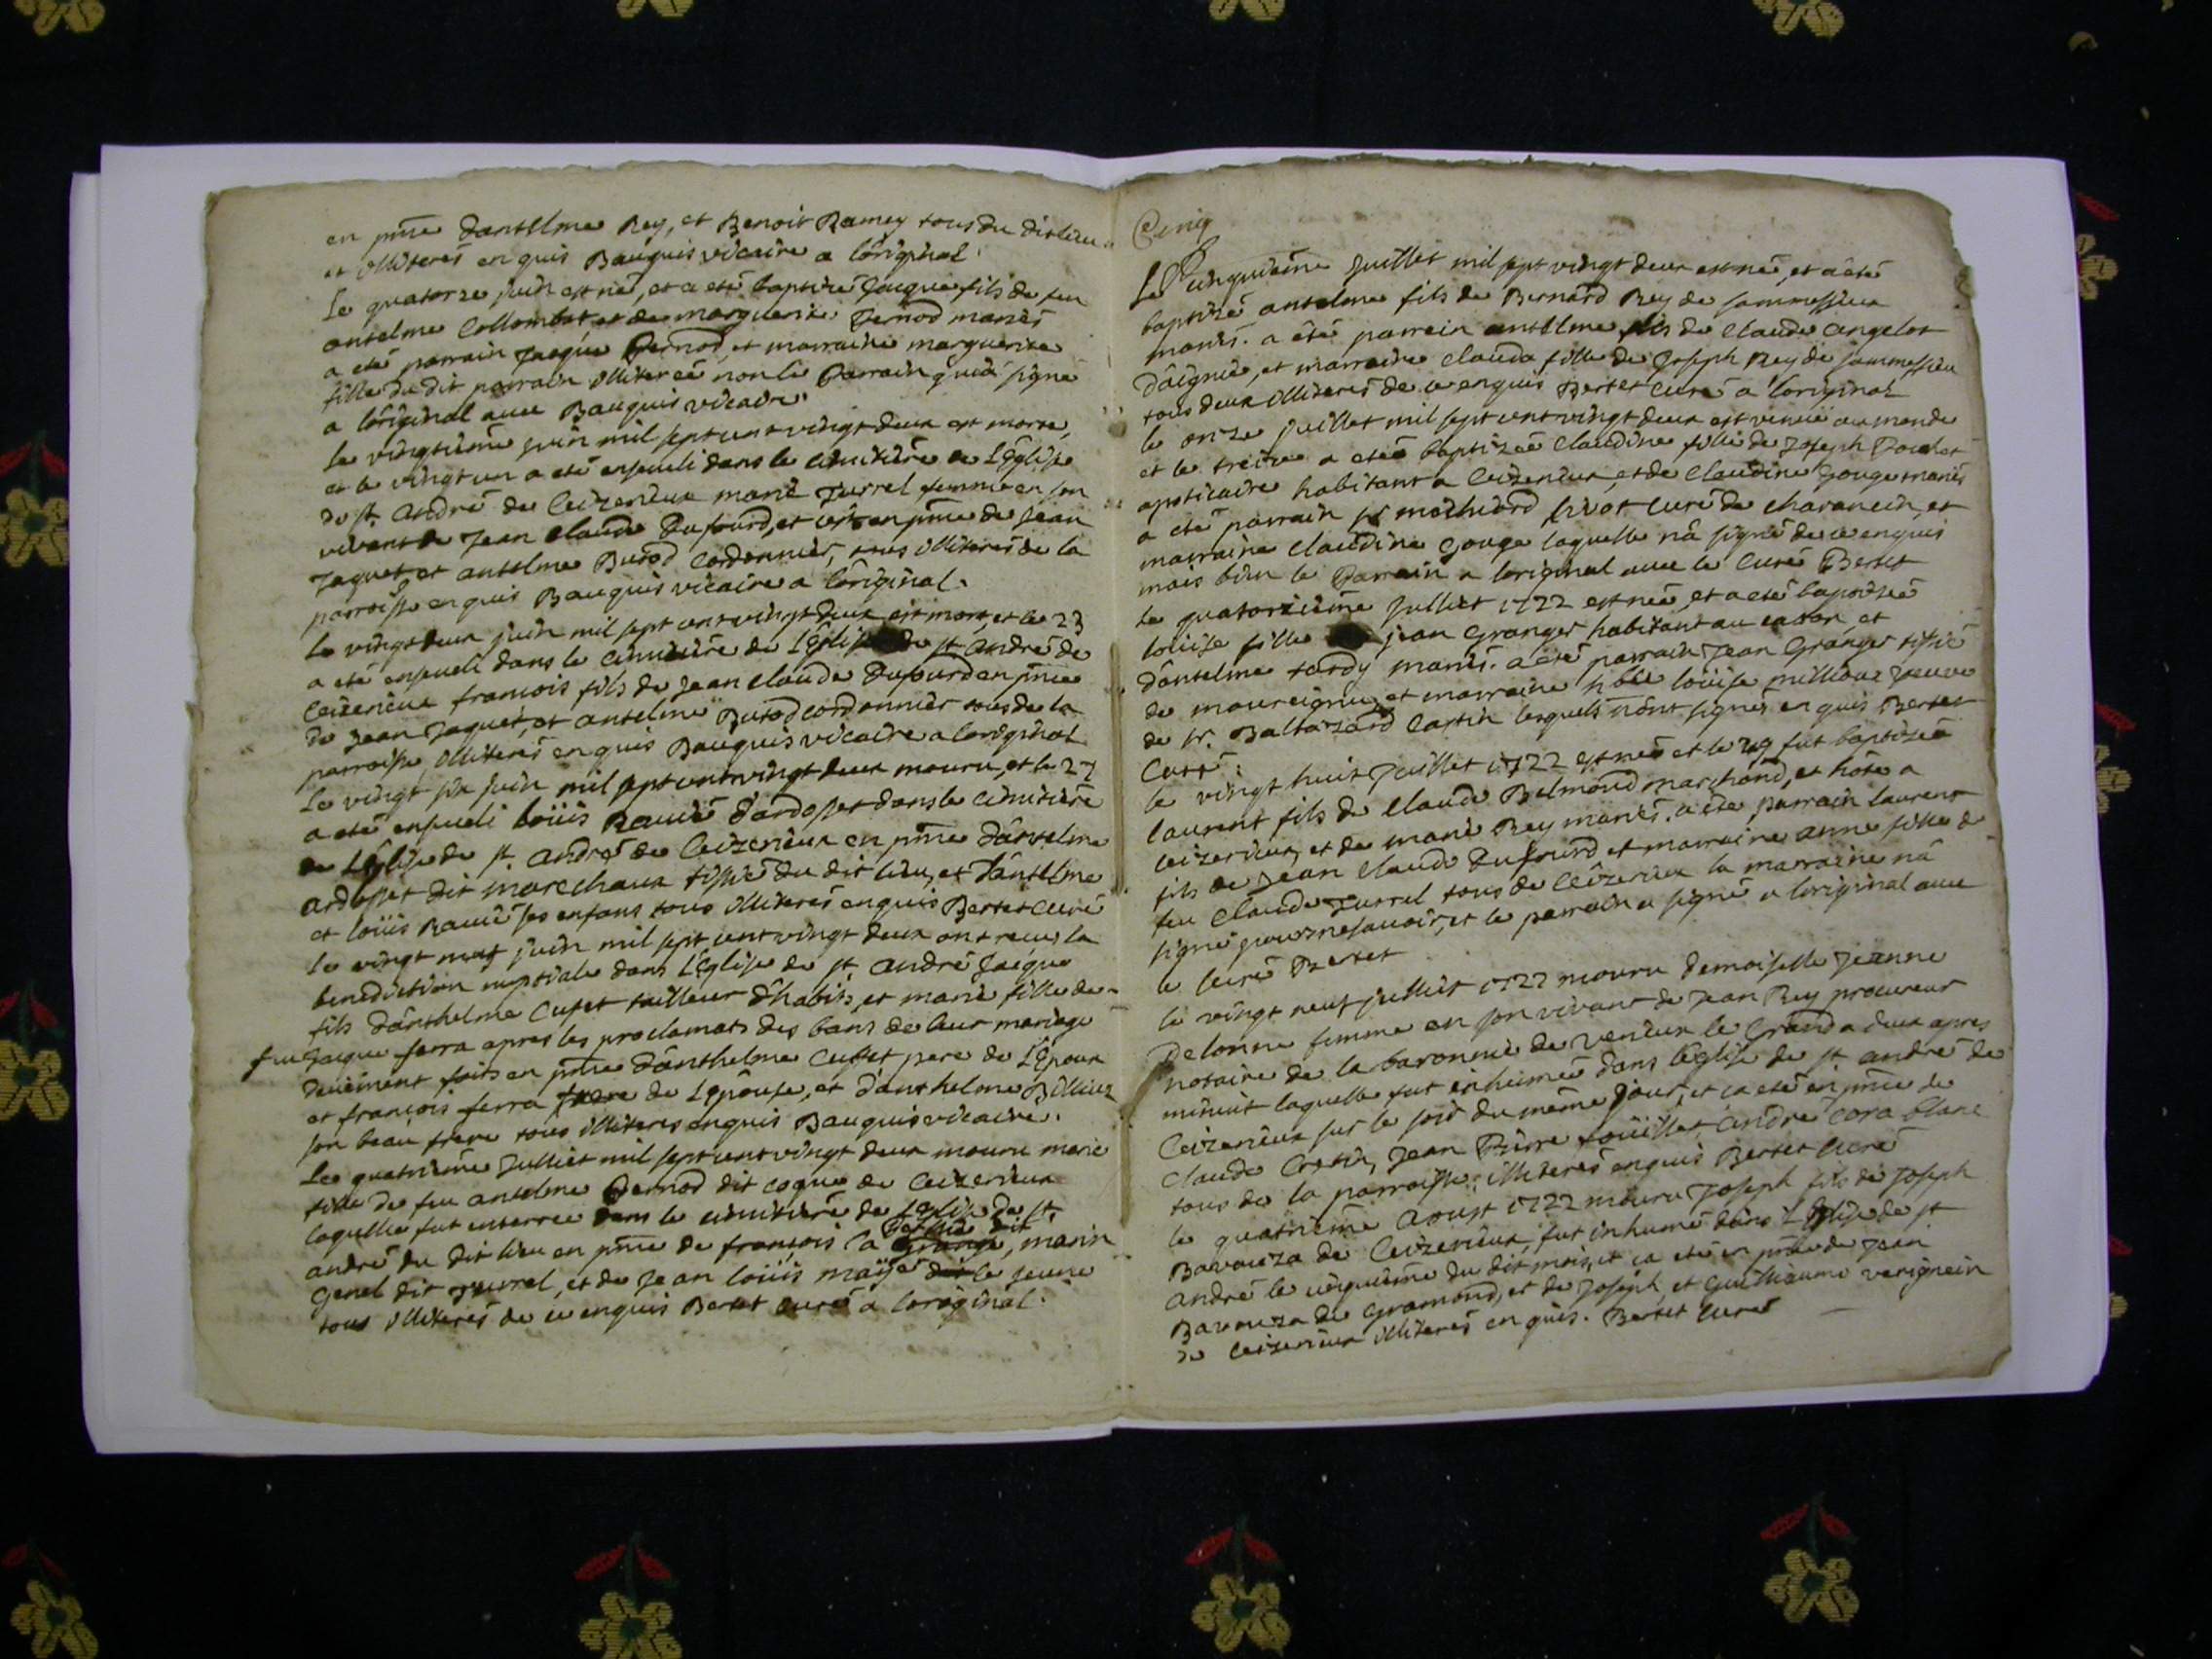 en pñce dantelme Rey, et Benoit Ramey tous du dit lieu
et illiterés enquis Bauquis vicaire a l'original.
Le quatorze juin est né, et a eté baptisé Jacque fils de feu
antelme Collombet et de marguerite Pernod mariés
a eté parrain Jacque Pernod, et marraine marguerite
fille du dit parrain illiterée non le Parrain qui a signé
a l'original avec Bauquis vicaire.
Le vingtième juin mil sept cent vingt deux est morte,
et le vingt un a eté enseveli dans le cimitière de L'Eglise
de st. André de Ceizerieux marie Jurrel femme en son
vivant de Jean Claude Dufourd, et c'est en pñce de Jean
Jaquet et antelme Butod Cordonnier, tous illiterés de la
parroisse enquis Bauquis vicaire a l'original.
Le vingt deux juin mil sept cent vingt deux est mort, et le 23
a eté enseveli dans le cimitière de L'Eglise de st André de
Ceizerieux francois fils de Jean Claude Dufourd en pñce
de Jean Jaquet, et antelme Butod cordonnier tous de la
parroisse, illiterés enquis Bauquis vicaire a loriginal.
Le vingt six juin mil sept cent vingt deux mouru, et le 27
a eté enseveli loüis Ravié d'ardosset dans le cimitière
de L'Eglise de st. André de Ceizerieux en pñce d'antelme
ardosset dit marechaux tissié du dit lieu, et d'antelme
et loüis Ravié ses enfans tous illiterés enquis Bertet curé
le vingt neuf juin mil sept cent vingt deux ont receu la
benediction nuptiale dans L'Eglise de st. André Jacque
fils d'anthelme Cuset tailleur d'habits, et marie fille de
feu Jacque ferra apres les proclamats des bans de leur mariage
deuëment faits en pñce d'anthelme Cuset pere de L'Epoux
et françois ferra frere de L'Epouse, et d'anthelme Billieux
son beau frere tous illiteres enquis Bauquis vicaire.
Le quatrième Julliet mil sept cent vingt deux mouru marie
fille de feu antelme Pernod dit coque de Ceizerieux
laquelle fut enterrée dans le cimitière de L'Eglise de st.
andré du dit lieu en pñce de françois la Grange, marin
genel dit Jurrel, et de Jean loüis le jeune
tous illiterés de ce enquis Bertet curé a l'original.
Cinq
Le Cinquième Juillet mil sept vingt deux est né, et a eté
baptizé antelme fils de Bernard Rey de sommessieu
mariés. a eté parrein antelme fils de Claude angelot
d'aignie, et marraine Clauda fille de Joseph Rey de sommessieu
tous deux illiterés de ce enquis Bertet Curé a l'original
le onze juillet mil sept cent vingt deux est venuë au monde
et le treize a eteé baptizeé Claudine fille de Joseph
apoticaire habitant a Ceizerieux, et de Claudine Gouge mariés
a eté parrain curé de charancin, et
marraine Claudine Gouge laquelle n'a signé de ce enquis
mais bien le Parrain a l'original avec le Curé Bertet
Le quatorzième Julliet 1722 est née, et a eté baptisée
loüise fille jean Granger habitant au et
d'antelme tardy mariés. a eté parrain Jean Granger tissié
de et marraine loüise veuve
de sr. Baltazard Cartin lesquels n'ont signés enquis Bertet
Curé.
le vingt huit Juillet 1722 est né et le 29 fut baptizé
laurent fils de Claude Belmond marchand, et hôte a
Ceizerieux, et de marie Rey mariés. a eté parrain laurent
fils de Jean Claude Dufourd et marraine anne fille de
feu Claude Jurrel tous de Ceizerieux la marraine n'a
signé pour ne savoir, et le parrain a signé a l'original avec
le Curé Bertet
le vingt neuf julliet 1722 mouru Demoiselle Jeanne
Delorme femme en son vivant de Jean Rey procureur
notaire de la baronnie de Verieux le Grand a deux apres
minuit laquelle fut inhumée dans l'Eglise de st andré de
Ceizerieux sur le soir du même Jour, et ça eté en pñce de
Claude Cretin, Jean Pierre andré
tous de la parroisse, illiterés enquis Bertet Curé
le quatrième Aoust 1722 mouru Joseph fils de Joseph
Bavouza de Ceizerieux, fut inhumé dans L'Eglise de st
andré le cinquième du dit mois, et ça eté en pñce de Jean
Bavouza de Gramond, et de Joseph, et Guilliaume verignein
de Ceizerieux illiterés enquis. Bertet Curé